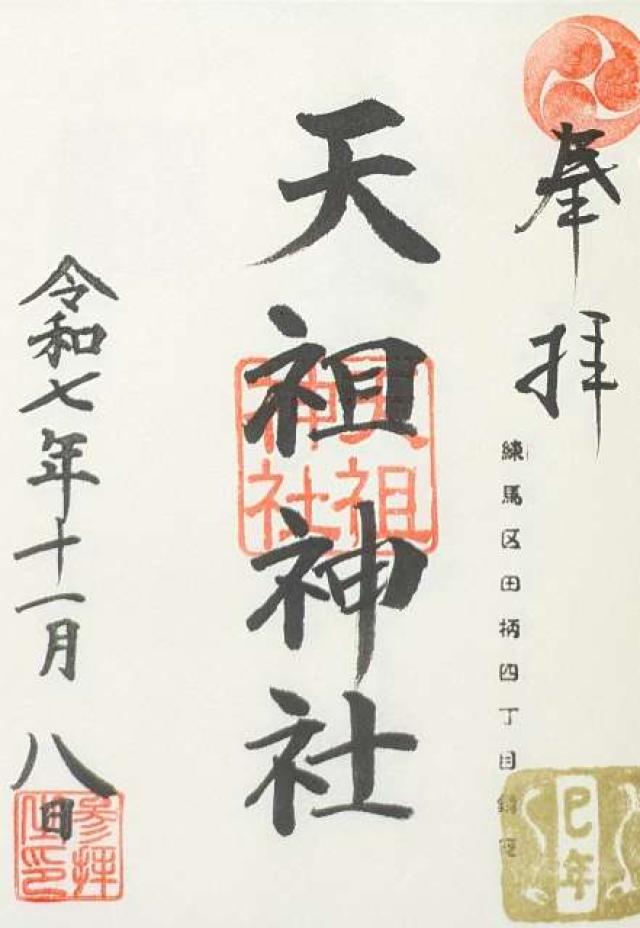 奉拝
練馬区田柄四丁目鎮座
天祖神社
天祖神社
令和七年十一月八日
参拝
巳年